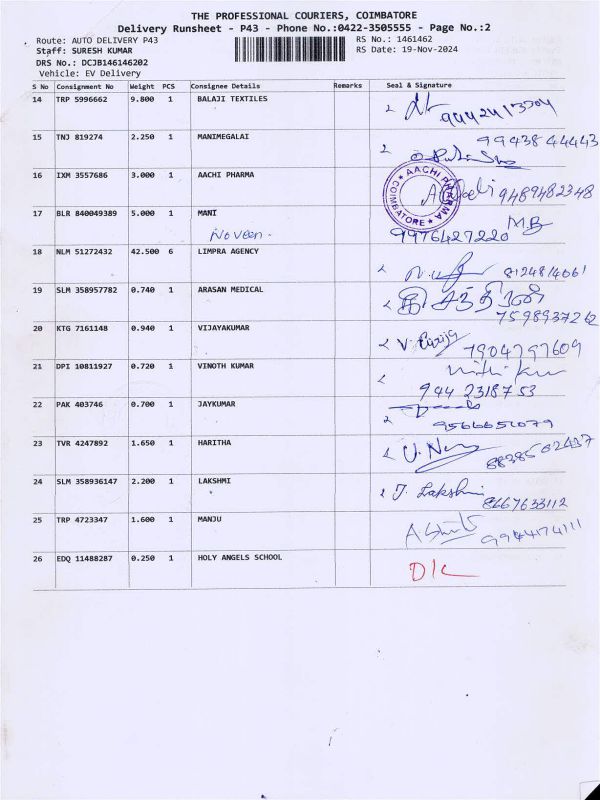 THE PROFESSIONAL COURIERS, COIMBATORE
Delivery Runsheet - P43 - Phone No.:0422-3505555 - Page No.:2
Route: AUTO DELIVERY P43 RS No.: 1461462
Staff: SURESH KUMAR RS Date: 19-Nov-2024
DRS No.: DCJB146146202
Vehicle: EV Delivery
S No Consignment No Weight PCS Consignee Details Remarks Seal & Signature
14 TRP 5996662 9.800 1 BALAJI TEXTILES
15 TNJ 819274 2.250 1 MANIMEGALAI 9943844443
16 IXM 3557686 3.000 1 AACHI PHARMA AACHI PHARMA COIMBATORE 9489482348
17 BLR 840049389 5.000 1 MANI
Naveen 9976427220
18 NLM 51272432 42.500 6 LIMPRA AGENCY
19 SLM 358957782 0.740 1 ARASAN MEDICAL
7598937262
20 KTG 7161148 0.940 1 VIJAYAKUMAR
7904797609
21 DPI 10811927 0.720 1 VINOTH KUMAR
944 2318753
22 PAK 403746 0.700 1 JAYKUMAR
9566651079
23 TVR 4247892 1.650 1 HARITHA
8838502437
24 SLM 358936147 2.200 1 LAKSHMI J. Lakshmi
8667633112
25 TRP 4723347 1.600 1 MANJU 9944174111
26 EDQ 11488287 0.250 1 HOLY ANGELS SCHOOL D/L